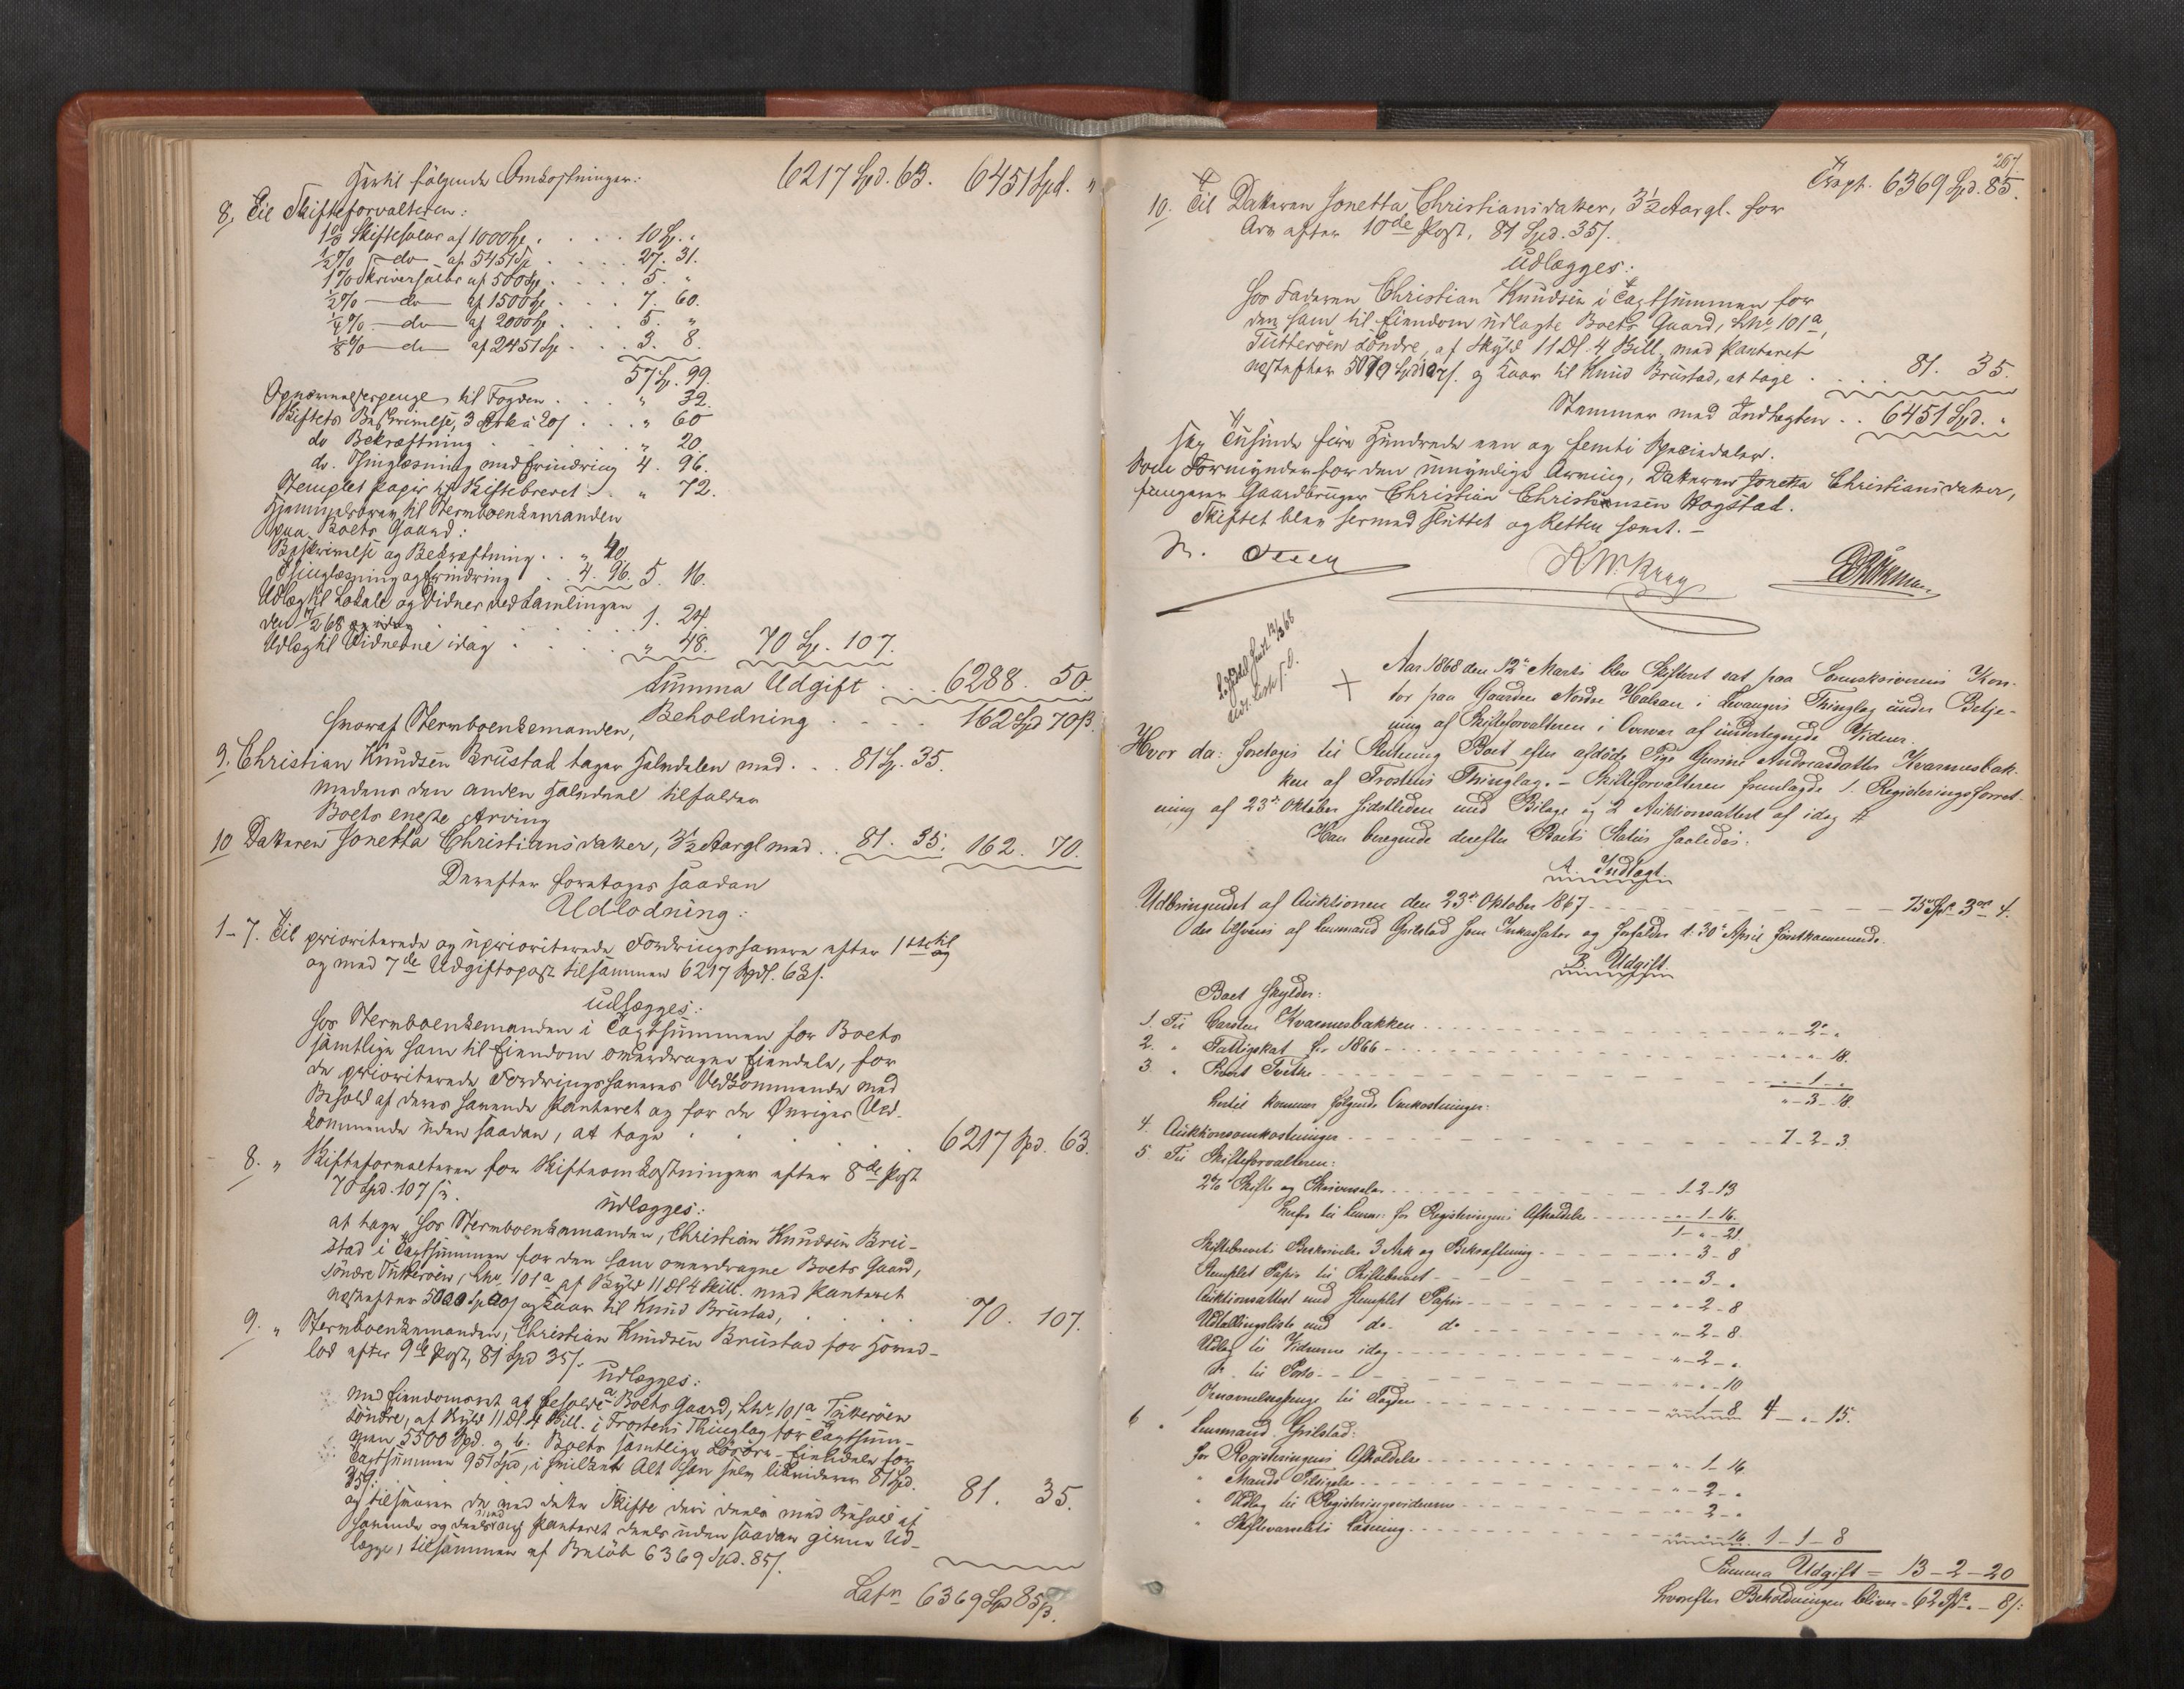 Hertil følgende Omkostninger: 6217 Spd. 63. 6451 Spd. "
8, Til Skifteforvalteren:
1% Skiftesalær af 1000 Sp. . . . 10 Sp. "
½% do af 5451 Sp . . . 27. 31.
1% Skriversalær af 500 Sp. . . . 5. "
½% do af 1500 Sp. . . . 7. 60.
¼% do af 2000 Sp. . . . 5. "
⅛% do af 2451 Sp. . . . 3. 8.
57 Sp. 99.
Opnævnelsespenge til Fogden . . . " 32.
Skiftets Beskrivelse, 3 Ark à 20 s . . . " 60
do Bekræftning . . . " 20
do. Thinglæsning med Erindring 4. 96.
Stemplet Papir til Skiftebrevet . . " 72.
Hjemmelsbrev til Stervboenkemanden
paa Boets Gaard:
Beskrivelse og Bekræftning . . " 40
Thinglæsning og Erindring . . 4. 96. 5. 16.
Udlæg til Lokale og Vidner ved Samlingen
den /2 68 1. 24.
Udlæg til Vidnerne idag . . . " 48. 70 Sp. 107.
Summa Udgift . . . 6288. 50.
Beholdning . . . 162 Spd 70 ß.
hvoraf Stervboenkemanden,
9. Christian Knudsen Brustad tager Halvdelen med . . . 81 Sp. 35.
medens den anden Halvdeel tilfalder
Boets eneste Arving
10 Datteren Jonetta Christiansdatter, 3½ Aargl med . . 81. 35. 162. 70.
Derefter foretoges saadan
Udlodning:
1-7. Til prioriterede og uprioriterede Fordringshavere efter 1ste til
og med 7de Udgiftspost tilsammen 6217 Spd. 63 s.
udlægges:
hos Stervboenkemanden i Taxtsummen for Boets
samtlige ham til Eiendom overdragne Eiendele, for
de prioriterede Fordringshaveres Vedkommende med
Behold af deres havende Panteret og for de Øvriges Ved-
kommende uden saadan, at tage . . . 6217 Spd. 63.
8. " Skifteforvalteren for Skifteomkostninger efter 8de Post
70 Spd. 107 s.
udlægges:
at tage hos Stervboenkemanden, Christian Knudsen Bru-
stad i Taxtsummen for den ham overdragne Boets Gaard,
søndre Tutterøen, LNr. 101a af Skyld 11 Ort 4 Skill. med Panteret
næstefter og Kaar til Knud Brustad, . . . 70. 107.
9. " Stervboenkemanden, Christian Knudsen Brustad for Hoved-
lod efter 9de Post, 81 Spd 35 s.
udlægges:
med Eiendomsret at beholde a. Boets Gaard, LNr. 101a Tutterøen
søndre, af Skyld 11 Ort 4 Skill. i Frostens Thinglag for Taxtsum-
men 5500 Spd. og b: Boets samtlige Løsøre-Eiendele for
Taxtsummen 951 Spd, i hvilket Alt han selv likviderer 81 Spd.
35 s.
og tilsvarer de ved dette Skifte deri deels med Behold af
havende og deels med Panteret deels uden saadan givne Ud-
lægge, tilsammen af Beløb 6369 Spd. 85 s. 81. 35.
Latus 6369 Spd 85 ß.
267.
Trspt. 6369 Spd. 85.
10. Til Datteren Jonetta Christiansdatter, 3½ Aargl. for
Arv efter 10de Post, 81 Spd. 35 s.
udlægges:
hos Faderen Christian Knudsen i Taxtsummen for
den ham til Eiendom udlagte Boets Gaard, LNr. 101a,
Tutterøen søndre, af Skyld 11 Ort 4 Skill. med Panteret
næstefter og Kaar til Knud Brustad, at tage . . . 81. 35.
Stemmer med Indtægten . . 6451 Spd. "
sex Tusinde fire Hundrede een og femti Speciedaler.
Som Formynder for den umyndige Arving, Datteren Jonetta Christiansdatter,
fungerer Gaardbruger Christian Christiansen Hogstad.
Skiftet blev hermed sluttet og Retten hævet. –
K. W. Krag
Aar 1868 den 12te Marts blev Skifteret sat paa Sorenskriverens Kon-
tor paa Gaarden Nordre Halsan i Levangers Thinglag under Betje-
ning af Skifteforvalteren i Overvær af undertegnede Vidner.
Hvor da: foretoges til Slutning Boet efter afdøde Pige Gurine Andreasdatter Kvammesbak-
ken af Frostens Thinglag. – Skifteforvalteren fremlagde 1. Registreringsforret-
ning af 23de Oktober sidstleden med Bilage og 2 Auktionsattest af idag #
Han beregnede derefter Boets Status saaledes:
A. Indtægt.
Udbringendet af Auktionen den 23de Oktober 1867 – – – 75 Spd 3 ort 4.
der tilsvares af Lensmand Grilstad som Inkassator og forfalder d. 30te April førstkommende.
B. Udgift.
Boet skylder:
1. Til Carsten Kvammesbakken . . . " – 2 – "
2. " Fattigskat for 1866 . . . " – " – 18.
3. " . . . " – 1 – "
" – 3 – 18.
hertil kommer følgende Omkostninger:
4. Auktionsomkostninger . . . 7 – 2 – 3
5. Til Skifteforvalteren:
2% Skifte og Skriversalær . . . 1 – 2 – 13
herfra til Lensm: for Registreringens Afholdelse . . . " – 1 – 16.
1 – " – 21
Skiftebrevets Beskrivelse 3 Ark og Bekræftning . . . " – 3 – 8
Stemplet Papir til Skiftebrevet . . . " – 3 – "
Auktionsattest med stemplet Papir . . . " – 2 – 8
Udtællingsliste med do do . . . " – 2 – 8
Udlæg til Vidnerne idag . . . " – 2 – "
do til Porto . . . " – " – 10
Opnævnelsespenge til Fogden . . . " – 1 – 8 4 – " – 15.
6 " Lensmand Grilstad:
for Registreringens Afholdelse . . . " – 1 – 16
" Mænds Tilsigelse . . . " – 2 – "
" Udlæg til Registreringsvidnerne . . . " – 2 – "
" Skiftevarselets Læsning . . . " – " – 16. 1 – 1 – 8
Summa Udgift = 13 – 2 – 20
hvorefter Beholdningen bliver = 62 Spd – " – 8 s: